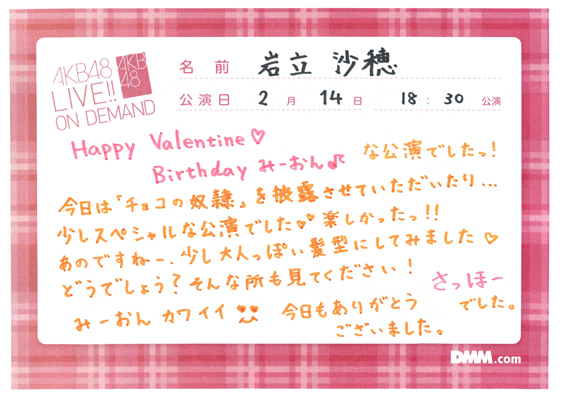 AKB48
LIVE!!
ON DEMAND
AKB
48
名前 岩立 沙穂
公演日 2月 14日 18:30 公演
Happy Valentine♡
Birthday みーおん♪ な公演でしたっ!
今日は「チョコの奴隷」を披露させていただいたり...
少しスペシャルな公演でした♡♡ 楽しかったっ!!
あのですねー、少し大人っぽい髪型にしてみました♡
どうでしょう?そんな所も見てください!
みーおん カワイイ 今日もありがとう
ございました。
さっほー
でした。
DMM.com